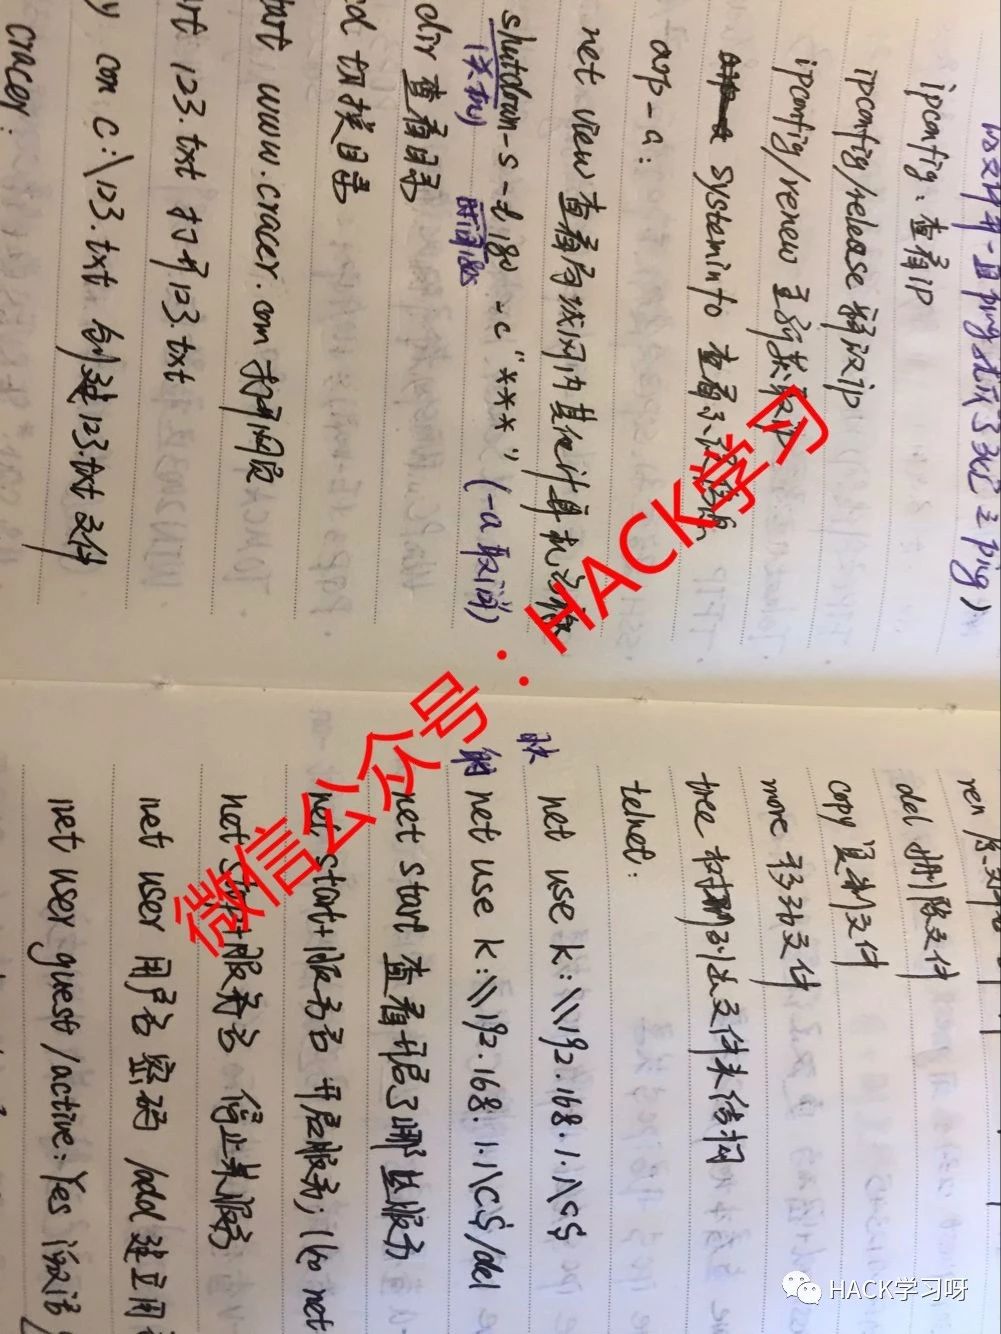 ipconfig：查看IP
ipconfig/release 释放ip
ipconfig/renew 重新获取IP
systeminfo 查看系统信息
arp -a：
net view 查看局域网内其他计算机名称
shutdown -s -t 180 -c "***" (-a 取消)
(关机) 时间180s
dir 查看目录
cd 切换目录
start www.cracer.com 打开网页
123.txt 打开123.txt
con c:\123.txt 创建123.txt文件
cracer：
del 删除文件
copy 复制文件
more 移动文件
tree 树型列出文件夹结构
telnet：
映 net use k: \\192.168.1.1\c$
net use k: \\192.168.1.1\c$ /del
net start 查看开启了哪些服务
net start+服务名 开启服务；
服务名 停止某服务
net user 用户名 密码 /add 建立用
net user guest /active:Yes 激活
微信公众号：HACK学习
HACK学习呀